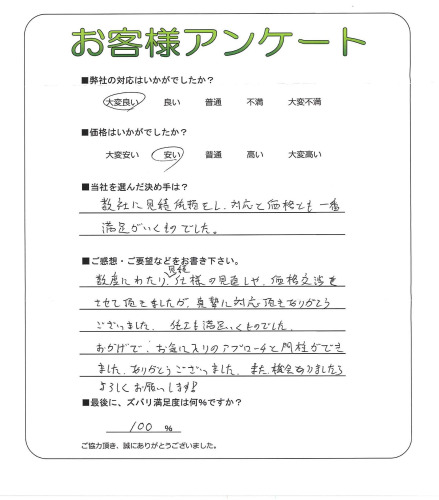 お客様アンケート
■弊社の対応はいかがでしたか？
大変良い 良い 普通 不満 大変不満
■価格はいかがでしたか？
大変安い 安い 普通 高い 大変高い
■当社を選んだ決め手は？
数社に見積依頼をし、対応と価格とも一番
満足がいくものでした。
■ご感想・ご要望などをお書き下さい。
見積
数度にわたり、仕様の見直しや、価格交渉を
させて頂きましたが、真摯に対応頂きありがとう
ございました。仕上も満足いくものでした。
おかげで、お気に入りのアプローチと門柱ができ
ました。ありがとうございました。また、機会ありましたら
よろしくお願いします!!
■最後に、ズバリ満足度は何%ですか？
100 %
ご協力頂き、誠にありがとうございました。